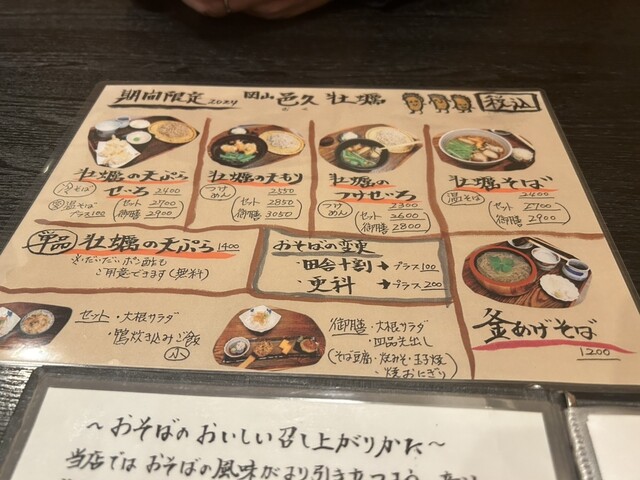 期間限定 2024 岡山 邑久 牡蠣 税込
おく
牡蠣の天ぷら
せいろ 2400
冷そば
温そば プラス100
セット 2700
御膳 2900
牡蠣の天もり
つけめん 2550
セット 2850
御膳 3050
牡蠣の
つけせいろ
つけめん 2300
セット 2600
御膳 2800
牡蠣そば
温そば 2400
セット 2700
御膳 2900
単品 牡蠣の天ぷら 1400
だいだいポン酢も
ご用意できます(無料)
おそばの変更
・田舎十割→プラス100
・更科→プラス200
釜あげそば
1200
セット・大根サラダ
・鴨炊き込みご飯
小
御膳・大根サラダ
・四品先出し
(そば豆腐・焼みそ・玉子焼
・焼おにぎり)
～おそばのおいしい召し上がりかた～
当店では おそばの風味がより引き立つよう